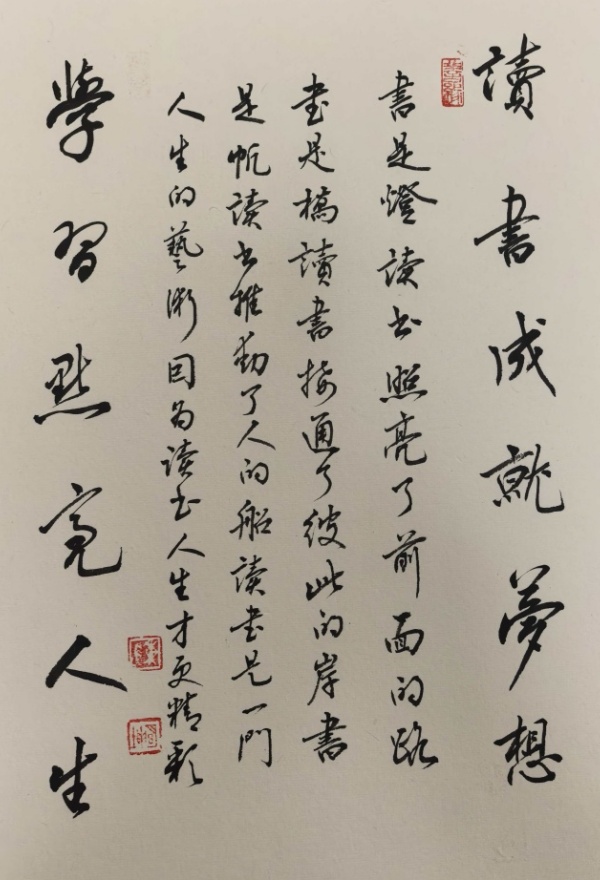 讀書成就夢想
書是燈读书照亮了前面的路
书是橋讀書接通了彼此的岸書
是帆读书推動了人的船读书是一門
人生的藝術因為读书人生才更精彩
學習點亮人生